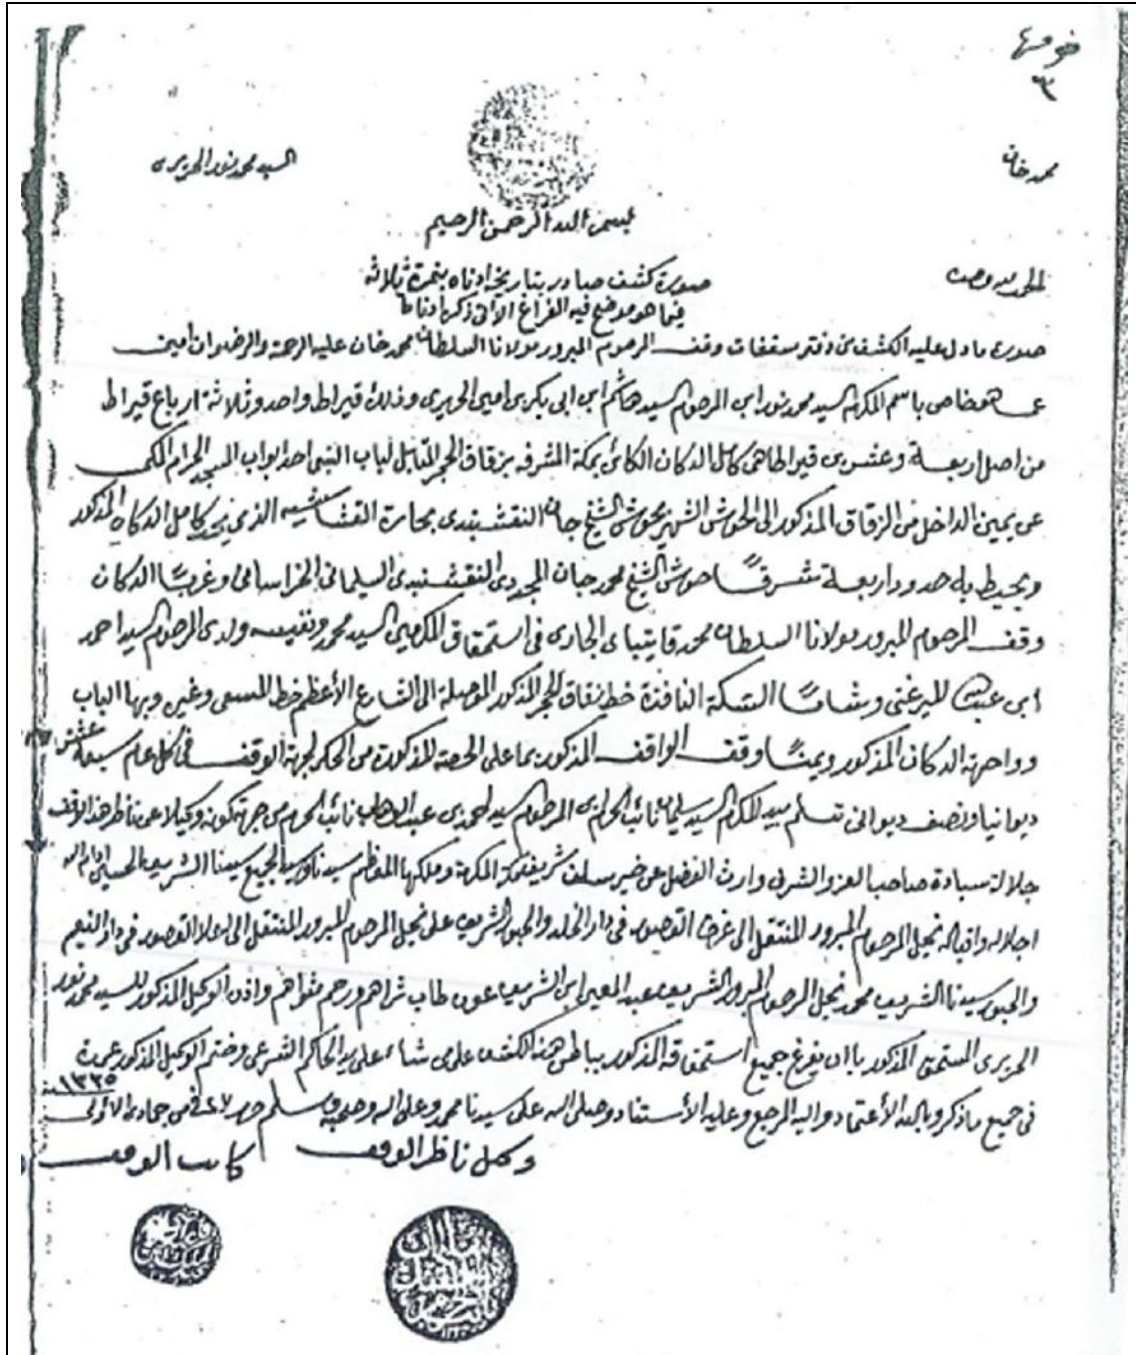 محمد خان
السيد محمد نور الحريرى
بسم الله الرحمن الرحيم
الحمد لله وحده
صورة كشف صادر بتاريخه ادناه بنمرة ثلاثه
فيما هو موضح فيه الفراغ الاتى ذكره ادناه
صورة ما دل عليه الكشف من دفتر مسقفات وقف المرحوم المبرور مولانا السلطان محمد خان عليه الرحمة والرضوان امين
عما هو خاص باسم المكرم السيد محمد نور ابن المرحوم السيد هاشم ابن ابى بكر بن امين الحريرى وذلك قيراط واحد وثلاثة ارباع قيراط
من اصل اربعة وعشرين قيراطا هى كامل الدكان الكائن بمكة المشرفه بزقاق الحجر المقابل لباب النبى احد ابواب المسجد الحرام المكى
عن يمين الداخل من الزقاق المذكور الى الحوش الشهير بحوش الشيخ جان النقشبندى بحارة القشاشيه الذى يحد كامل الدكان المذكور
ويحيط به حدود اربعة شرقًا حوش الشيخ محمد جان المجددى النقشبندى السليمانى الخراسانى وغربًا الدكان
وقف المرحوم المبرور مولانا السلطان محمد قايتباى الجارى فى استحقاق المكرمين السيد محمد ونفيسه ولدى المرحوم السيد احمد
ابن الميرغنى وشامًا السكة النافذة خط زقاق الحجر المذكور الموصلة الى الشارع الأعظم خط المسعى وغيره وبها الباب
وواجهة الدكان المذكور ويمنًا وقف الواقف المذكور بما على الحصة المذكورة من الحكر لجهة الوقف فى كل عام سبعة عشر
ديوانيا ونصف ديوانى تسلم بيد المكرم السيد سليمان نائب الحرم ابن المرحوم السيد احمد بن عبد الوهاب نائب الحرم من جهة كونه وكيلا عن ناظر هذا الوقف
جلالة سيادة صاحب العز والشرف وارث الفضل عن خير سلف شريف مكة المكرمة وملكها المعظم سيدنا وسيد الجميع سيدنا الشريف الحسين ادام الله
اجلاله واقباله نجل المرحوم المبرور المنتقل الى غرف القصور فى دار الخلد والحبور الشريف على نجل المرحوم المبرور المنتقل الى اعلا القصور فى دار النعيم
والحبور سيدنا الشريف محمد نجل المرحوم المبرور الشريف عبد المعين ابن الشريف عون طاب ثراهم ورحم مثواهم واذن الوكيل المذكور للسيد محمد نور
الحريرى المستحق المذكور بان يفرغ جميع استحقاقه المذكور بباطن هذا الكشف على من شاء على يد الحاكم الشرعى وختم الوكيل المذكور عمدة
فى جميع ما ذكر وبالله الأعتماد واليه المرجع وعليه الأستناد وصلى الله على سيدنا محمد وعلى اله وصحبه وسلم حرر فى ٢٧ من جمادى الأولى
سنة ١٣٣٥
وكيل ناظر الوقف
كاتب الوقف